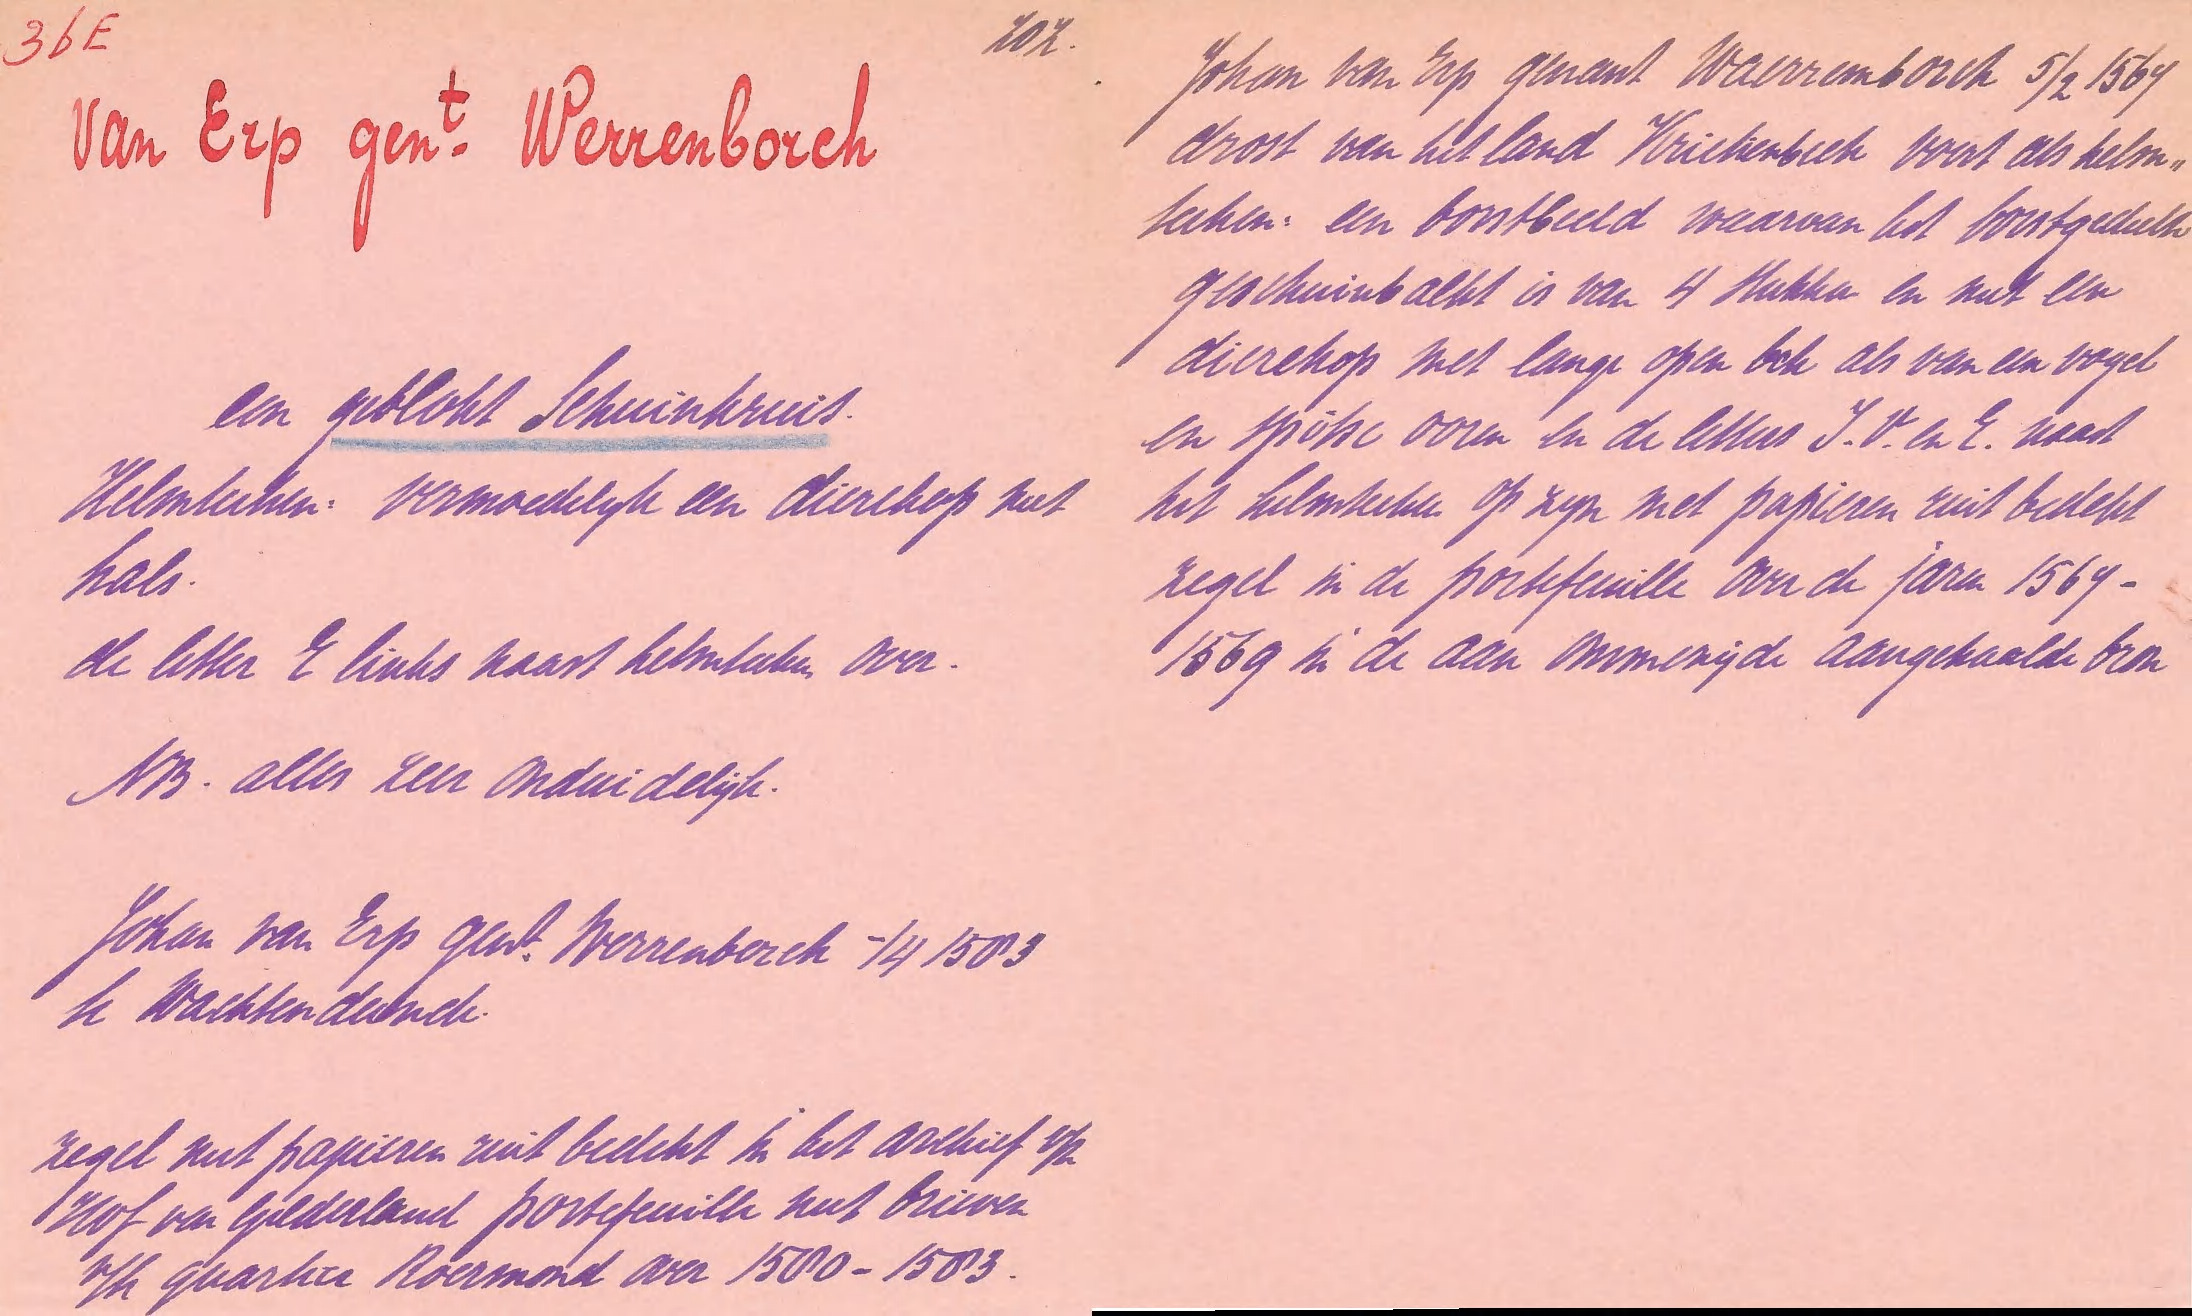 36E
202.
van Erp gen.t Werrenborch
een geblokt Schuinkruis.
Helmteeken: vermoedelijk een dierekop met
hals.
de letter E links naast helmteeken over.
NB. alles zeer onduidelijk.
Johan van Erp gent. Werrenborch -/4 1583
te Wachtendonck.
zegel met papieren ruit bedekt in het archief v/h
Hof van Gelderland portefeuille met brieven
v/h quartier Roermond over 1580-1583.
Johan van Erp genant Waerrenborch 5/2 1564
drost van het land Kriekenbeek voert als helm„
teeken: een borstbeeld waarvan het borstgedeelte
geschuinbalkt is van 4 stukken en met een
dierekop met lange open bek als van een vogel
en spitse ooren en de letters J. V. en E. naast
het helmteeken op zijn met papieren ruit bedekt
zegel in de portefeuille over de jaren 1564-
1569 in de aan ommezijde aangehaalde bron